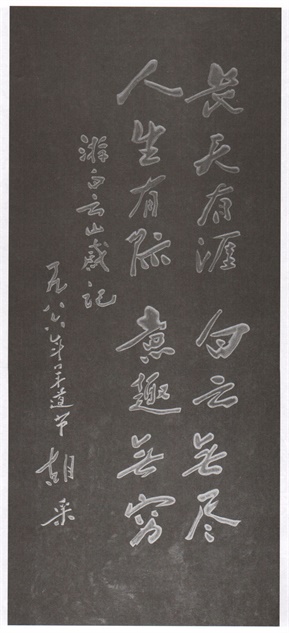 长天有涯 白云无尽
人生有际 意趣无穷
游白云山感记
一九八六年 胡采